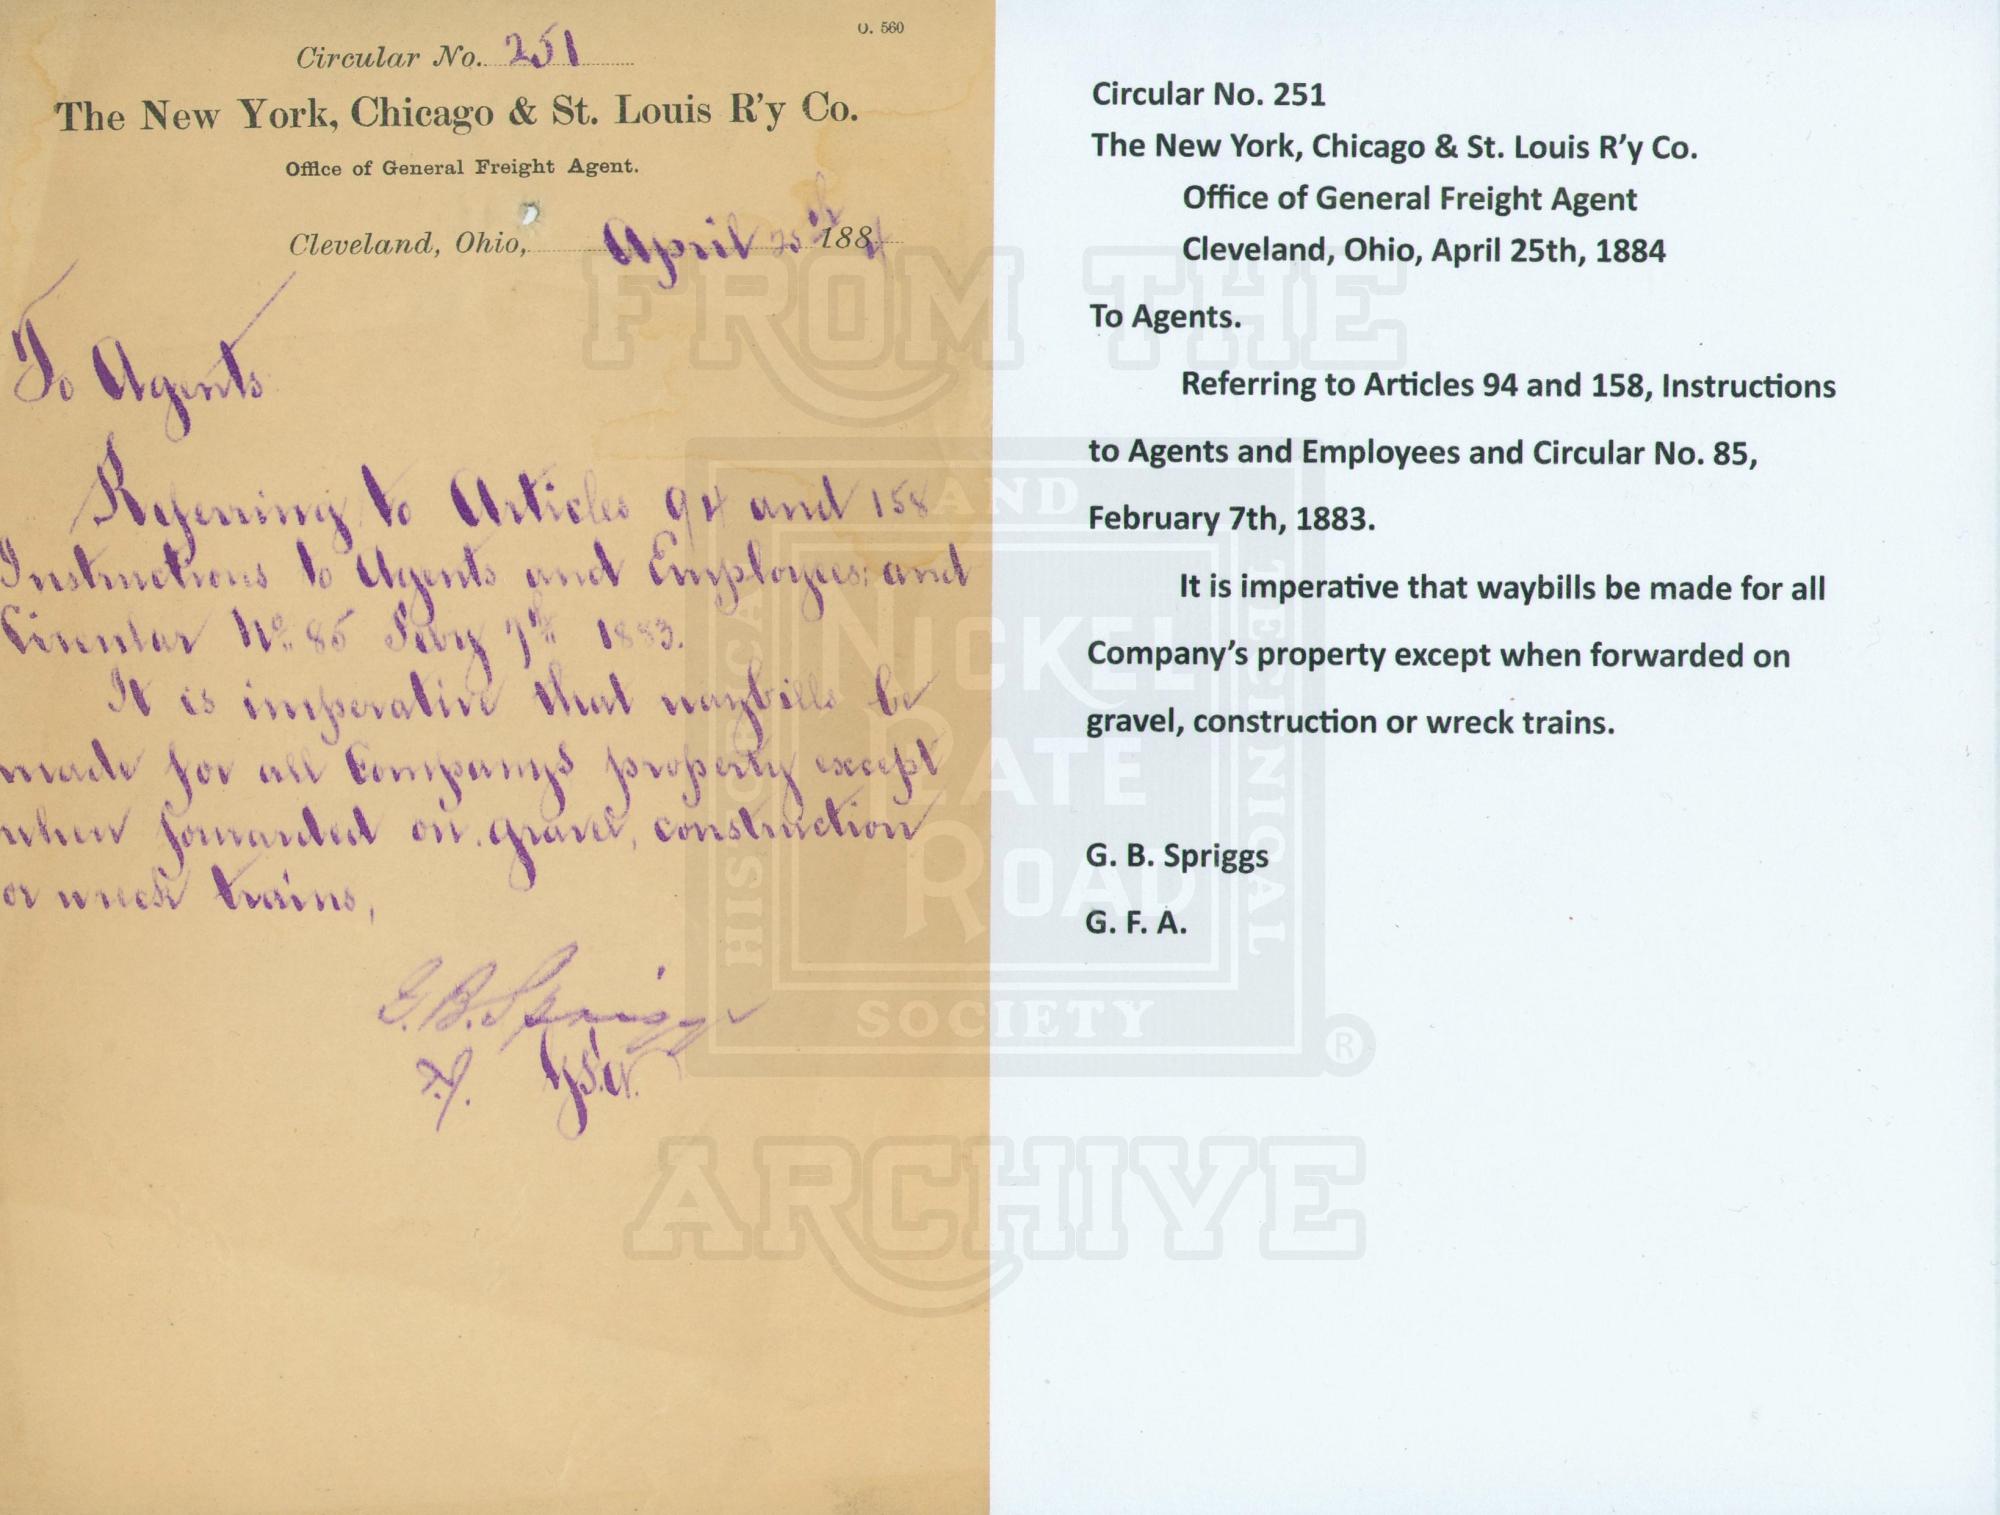 O. 560
Circular No. 251
The New York, Chicago & St. Louis R'y Co.
Office of General Freight Agent.
Cleveland, Ohio, April 25th 1884
To Agents
Referring to Articles 94 and 158
Instructions to Agents and Employees, and
Circular No. 85 Feby 7th 1883.
It is imperative that waybills be
made for all Companys property except
when forwarded on gravel, construction
or wreck trains,
G. B. Spriggs
Circular No. 251
The New York, Chicago & St. Louis R’y Co.
Office of General Freight Agent
Cleveland, Ohio, April 25th, 1884
To Agents.
Referring to Articles 94 and 158, Instructions
to Agents and Employees and Circular No. 85,
February 7th, 1883.
It is imperative that waybills be made for all
Company’s property except when forwarded on
gravel, construction or wreck trains.
G. B. Spriggs
G. F. A.
FROM THE
NICKEL
PLATE
ROAD
HISTORICAL
AND
TECHNICAL
SOCIETY
®
ARCHIVE